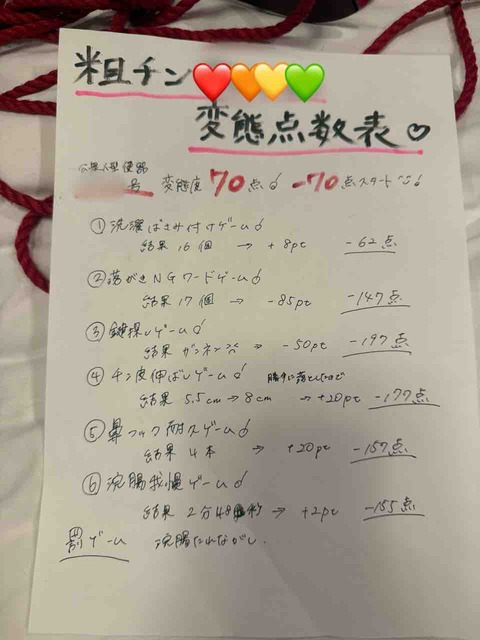 粗チン❤️🧡💛💚
変態点数表♡
公衆人型便器
号 変態度70点 -70点スタート
①洗濯ばさみ付けゲーム
結果 16個 → +8pt -62点
②落がきNGワードゲーム
結果 17個 → -85pt -147点
③鍵探しゲーム
結果 ザンネン → -50pt -197点
④チン皮伸ばしゲーム 勝手に落としたので
結果 5.5cm→8cm →+20pt -177点
⑤鼻フック耐久ゲーム
結果 4本 → +20pt -157点
⑥浣腸我慢ゲーム
結果 2分48秒 → +2pt -155点
罰ゲーム 浣腸たれながし.